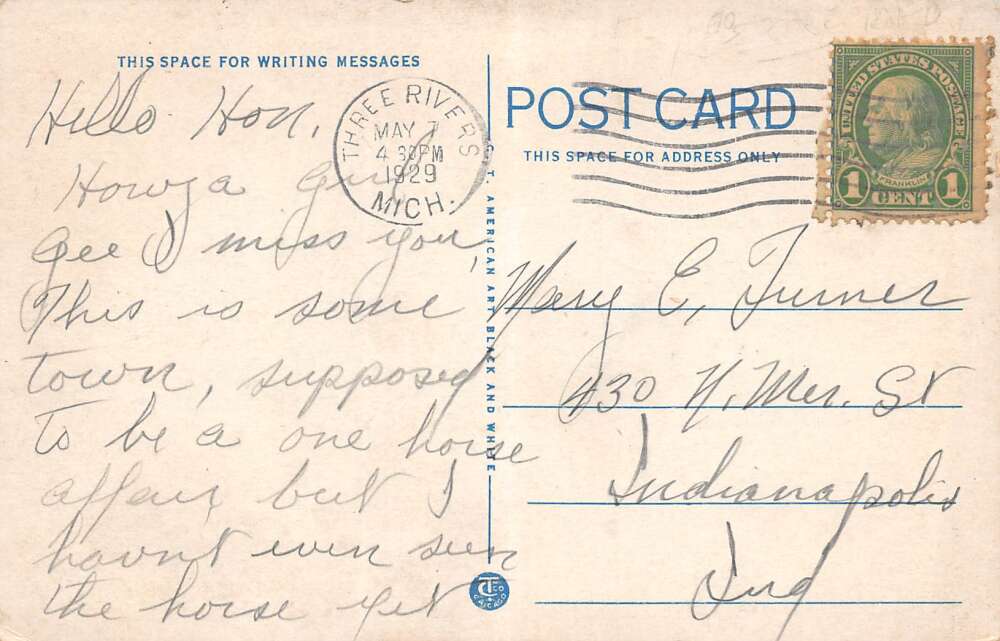 THIS SPACE FOR WRITING MESSAGES
Hello Hon,
Howza Girl
Gee I miss you,
This is some
town, supposed
to be a one horse
affair, but I
havnt even seen
the horse yet
THREE RIVERS
MAY 7
4 30PM
1929
MICH.
C. T. AMERICAN ART BLACK AND WHITE
POST CARD
THIS SPACE FOR ADDRESS ONLY
UNITED STATES POSTAGE
FRANKLIN
1 CENT 1
Mary E. Turner
430 N. Mer. St
Indianapolis
Ind
CT CO
CHICAGO